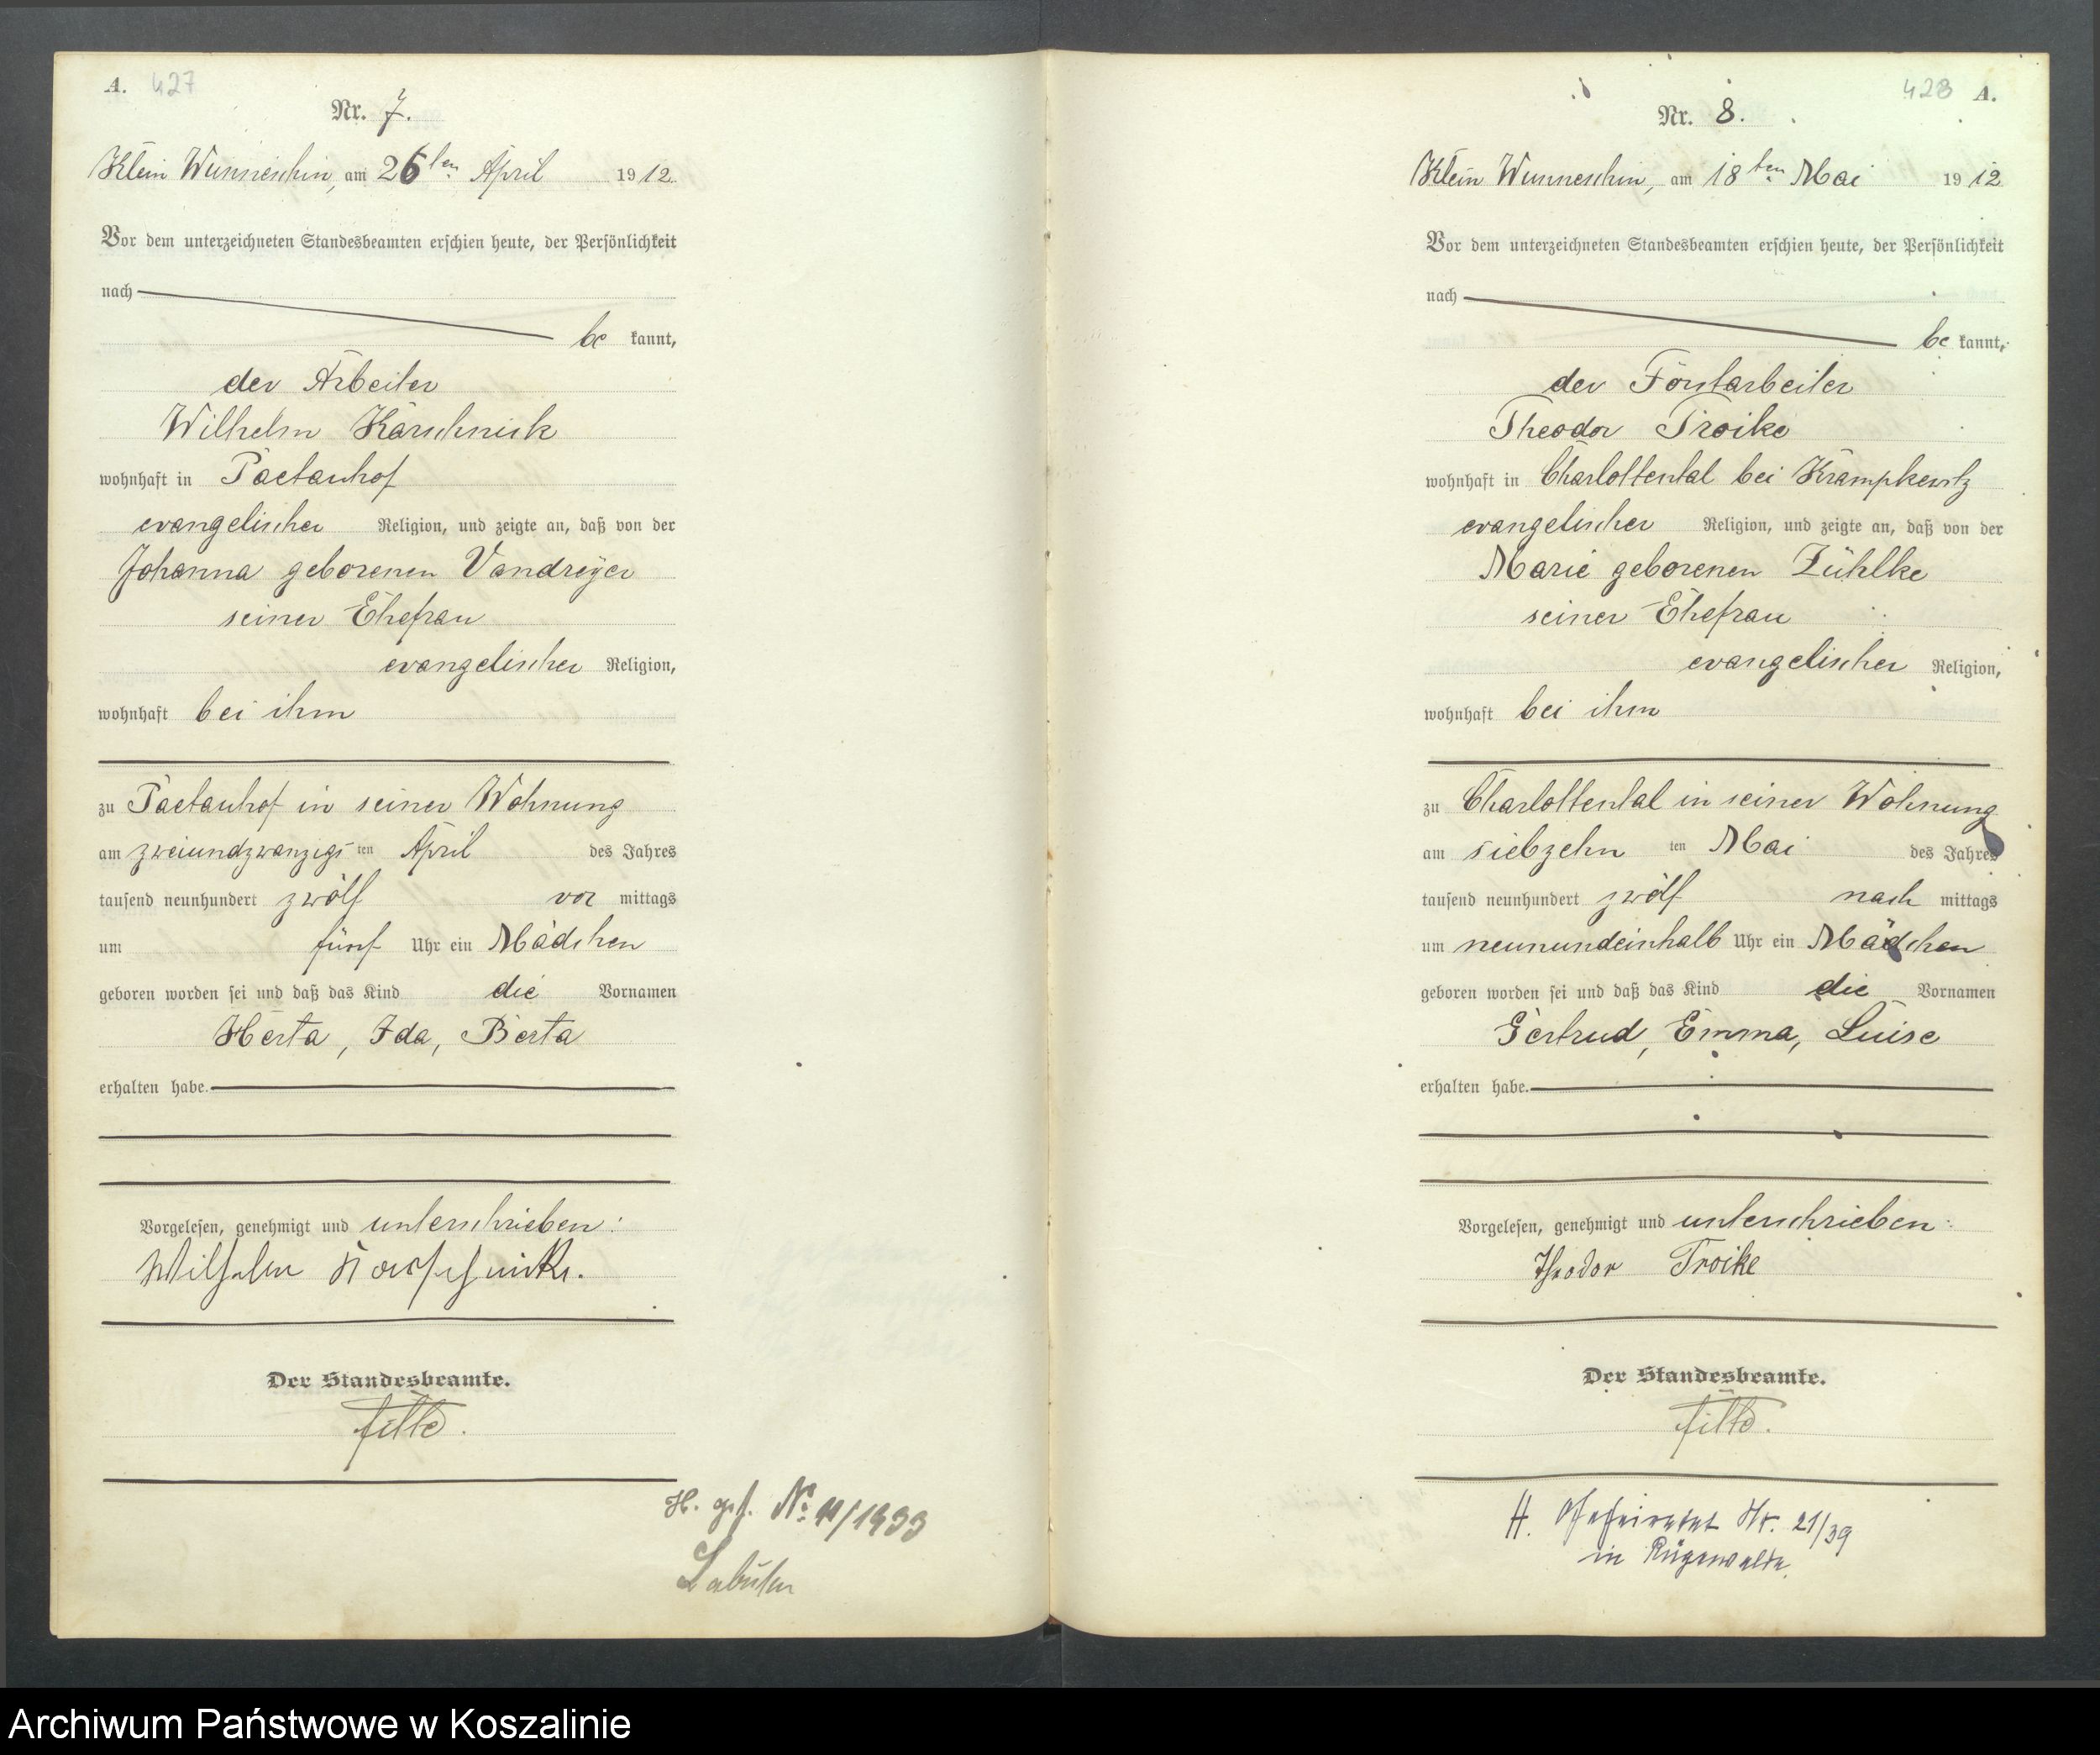 A. 427
Nr. 7.
Klein Wunneschin, am 26ten April 1912.
Vor dem unterzeichneten Standesbeamten erschien heute, der Persönlichkeit
nach
be kannt,
der Arbeiter
Wilhelm Karschnick
wohnhaft in Paetauhof
evangelischer Religion, und zeigte an, daß von der
Johanna geborenen Vandreÿer
seiner Ehefrau
evangelischer Religion,
wohnhaft bei ihm
zu Paetauhof in seiner Wohnung
am zweiundzwanzigs ten April des Jahres
tausend neunhundert zwölf vor mittags
um fünf Uhr ein Mädchen
geboren worden sei und daß das Kind die Vornamen
Herta, Ida, Berta
erhalten habe.
Vorgelesen, genehmigt und unterschrieben:
Wilhelm Karschnick.
Der Standesbeamte.
H. gest. No. /1933
Labuhn
428 A.
Nr. 8.
Klein Wunneschin, am 18ten Mai 1912
Vor dem unterzeichneten Standesbeamten erschien heute, der Persönlichkeit
nach
be kannt,
der Forstarbeiter
Theodor Troike
wohnhaft in Charlottental bei Krampkewitz
evangelischer Religion, und zeigte an, daß von der
Marie geborenen Zühlke
seiner Ehefrau
evangelischer Religion,
wohnhaft bei ihm
zu Charlottental in seiner Wohnung
am siebzehn ten Mai des Jahres
tausend neunhundert zwölf nach mittags
um neunundeinhalb Uhr ein Mädchen
geboren worden sei und daß das Kind die Vornamen
Gertrud, Emma, Luise
erhalten habe.
Vorgelesen, genehmigt und unterschrieben:
Theodor Troike
Der Standesbeamte.
H. Geheiratet Nr. 21/39
in Rügenwalde.
Archiwum Państwowe w Koszalinie